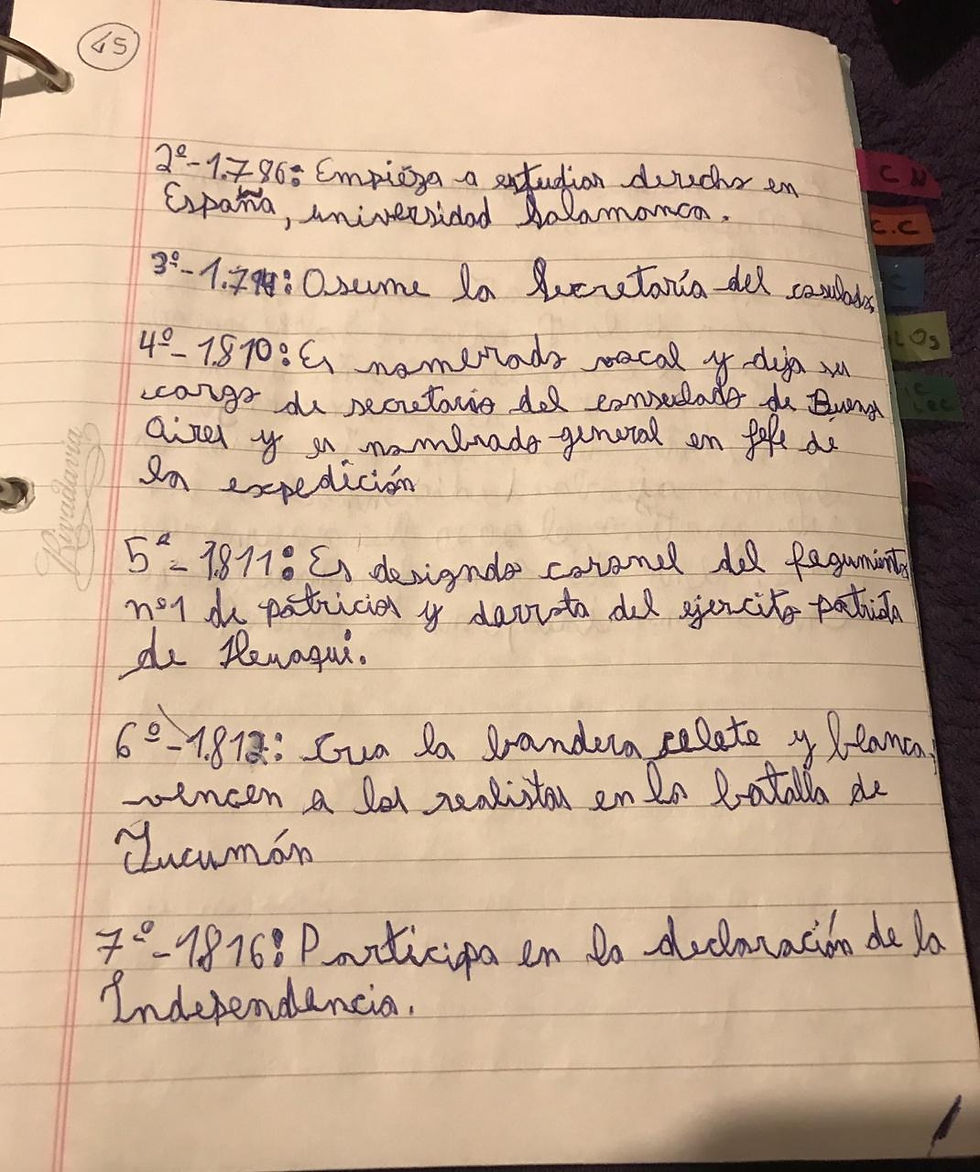 45
2º-1.786: Empieza a estudiar derecho en
España, universidad Salamanca.
3º-1.794: Asume la Secretaría del
4º-1.810: Es nomerado vocal y deja su
cargo de secretario del consulado de Buenos
Aires y es nombrado general en jefe de
la expedición
5ª-1811: Es designado coronel del
nº1 de patricios y darrota del ejercito patriota
de
6º-1.812: Crea la bandera celete y blanca,
vencen a los realistas en la batalla de
Tucumán
7º-1.816: Participa en la declaración de la
Independencia.
Rivadavia
C N
C.C
LOS